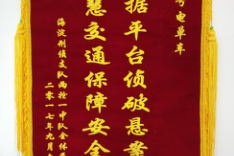 电单车
据平台侦破悬案
慧交通保障安全
海淀刑侦支队两抢一中队全体
二零一七年九月